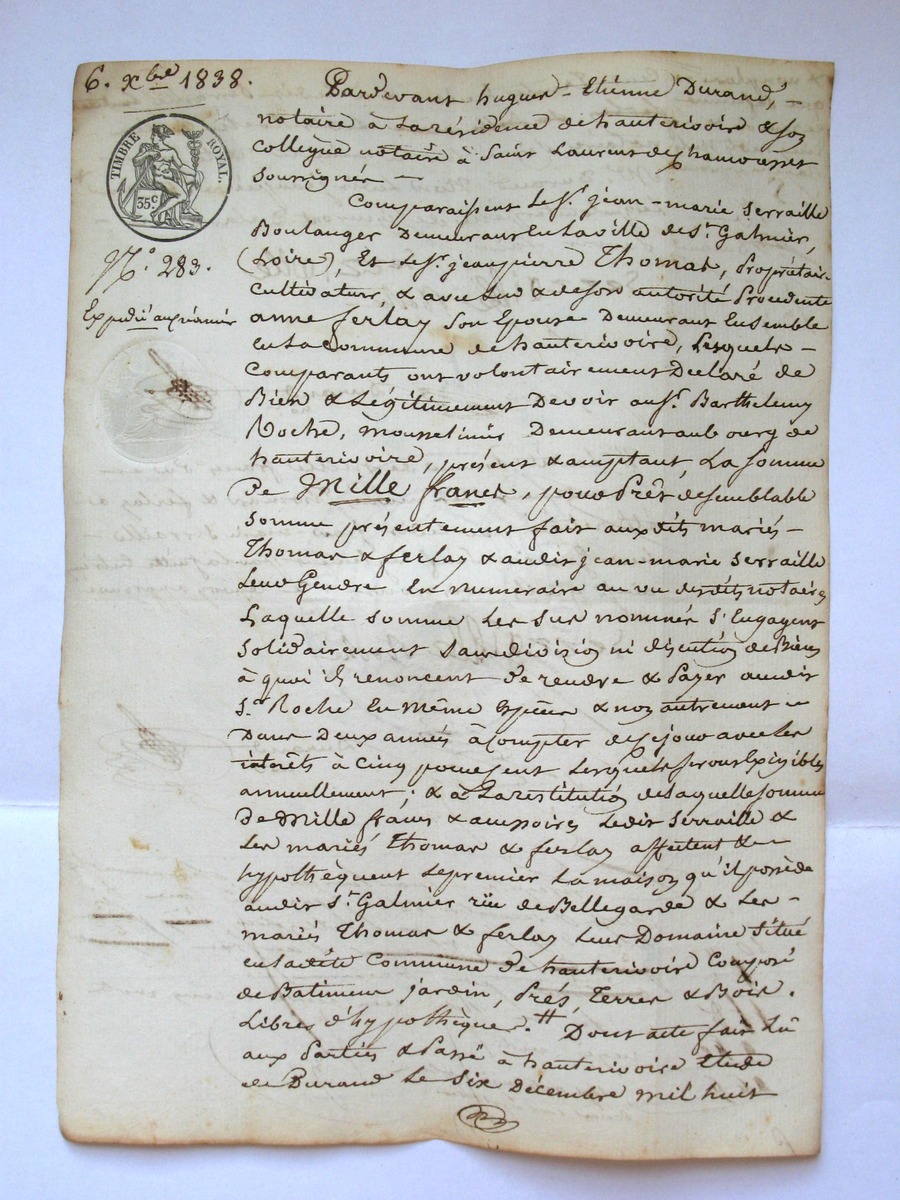 6. Xbre 1838.
TIMBRE ROYAL.
35c
No. 283.
Expédié au créancier
Pardevant hugues-Etiènne Durand,
notaire à la résidence de hauterivoire & son
collègue notaire à Saint Laurent de chamousset
soussignés
Comparaissent le Sr. jean-marie Serraille
Boulanger Demeurant en la ville de St. Galmier,
(Loire), Et le Sr. jean pierre Thomas, Propriétaire
cultivateur, & avec lui & de son autorité Procédante
anne ferlay Son Epouse Demeurant Ensemble
en la commune de hauterivoire, Lesquels
Comparants ont volontairement Déclaré de
Bien & Légitimement Devoir au Sr. Barthelemy
Roche, mousselinier Demeurant au bourg de
hauterivoire, présent & acceptant, La somme
de Mille francs, pour Prêt de semblable
Somme présentement fait aux dits mariés
Thomas & ferlay & audit jean-marie Serraille
Leur Gendre En numéraire au vu desdits notaires
Laquelle somme Les sus nommés S'Engagent
Solidairement Sans division ni discution de Biens
à quoi ils renoncent de rendre & Payer audit
Sr. Roche En même Espèces & non autrement
Dans Deux années à compter de ce jour avec les
intérêts à Cinq pour cent Lesquels seront Exigibles
annuellement; & à La restitution de laquelle somme
de Mille francs & accessoires Ledit Serraille &
Les mariés Thomas & ferlay affectent &
hypothèquent Le premier La maison qu'il possède
audit St. Galmier rüe de Bellegarde & Les
mariés Thomas & ferlay Leur Domaine Situé
en la dite Commune de hauterivoire Composé
de Batiment jardin, Prés, Terres & Bois.
Libres d'hypothèques. # Dont acte fait Lû
aux Parties & Passé à hauterivoire Etude
de Durand Le Six Décembre mil huit